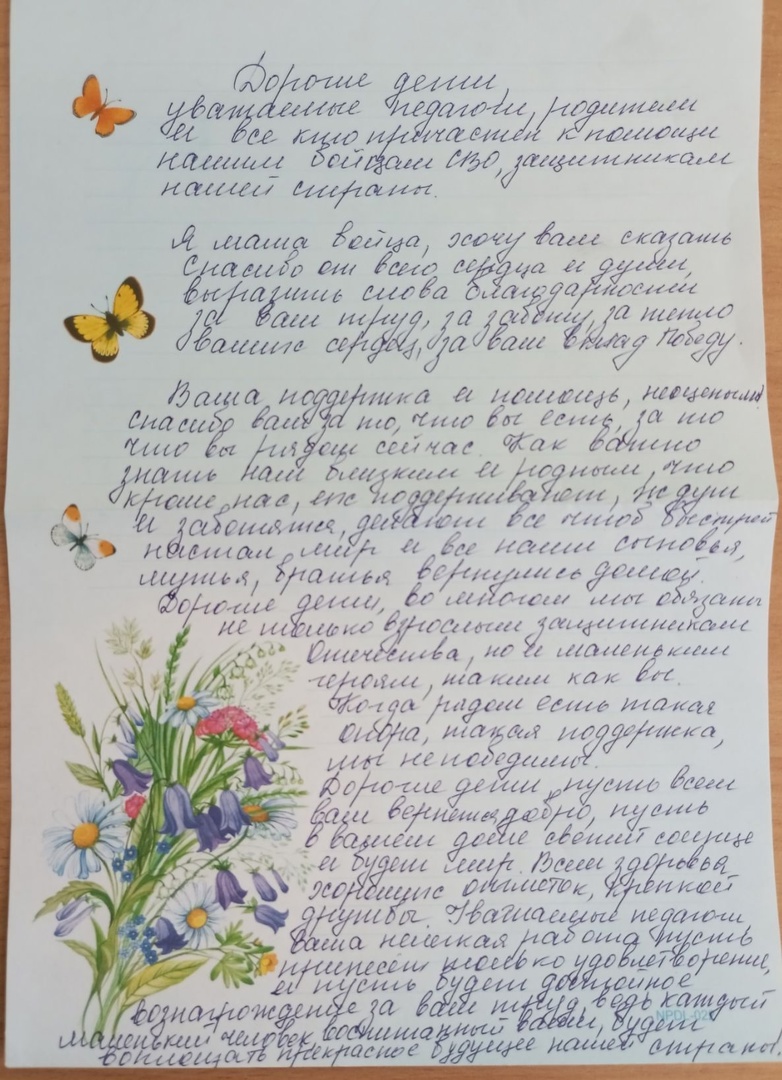 Дорогие дети,
уважаемые педагоги, родители
и все кто причастен к помощи
нашим бойцам СВО, защитникам
нашей страны.
Я мама бойца, хочу вам сказать
спасибо от всего сердца и души,
выразить слова благодарности
за ваш труд, за заботу, за тепло
ваших сердец, за ваш вклад Победу.
Ваша поддержка и помощь, неоценимы
спасибо вам за то, что вы есть, за то
что вы рядом сейчас. Как важно
знать нам близким и родным, что
кроме нас, их поддерживают, ждут
и заботятся, делают все чтоб быстрей
настал мир и все наши сыновья,
мужья, братья вернулись домой.
Дорогие дети, во многом мы обязаны
не только взрослым защитникам
Отечества, но и маленьким
героям, таким как вы.
Когда рядом есть такая
опора, такая поддержка,
мы непобедимы.
Дорогие дети, пусть всем
вам вернется добро, пусть
в вашем доме светит солнце
и будет мир. Всем здоровья
хороших отметок, крепкой
дружбы. Уважаемые педагоги
ваша нелегкая работа пусть
принесет только удовлетворение,
и пусть будет достойное
вознаграждение за ваш труд, ведь каждый
маленький человек, воспитанный вами, будет
воплощать прекрасное будущее нашей страны!